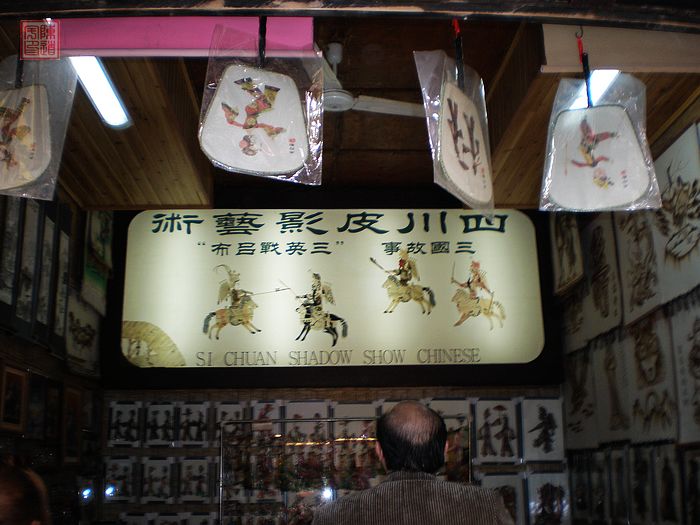 四川皮影藝術
三國故事 “三英戰呂布”
SI CHUAN SHADOW SHOW CHINESE